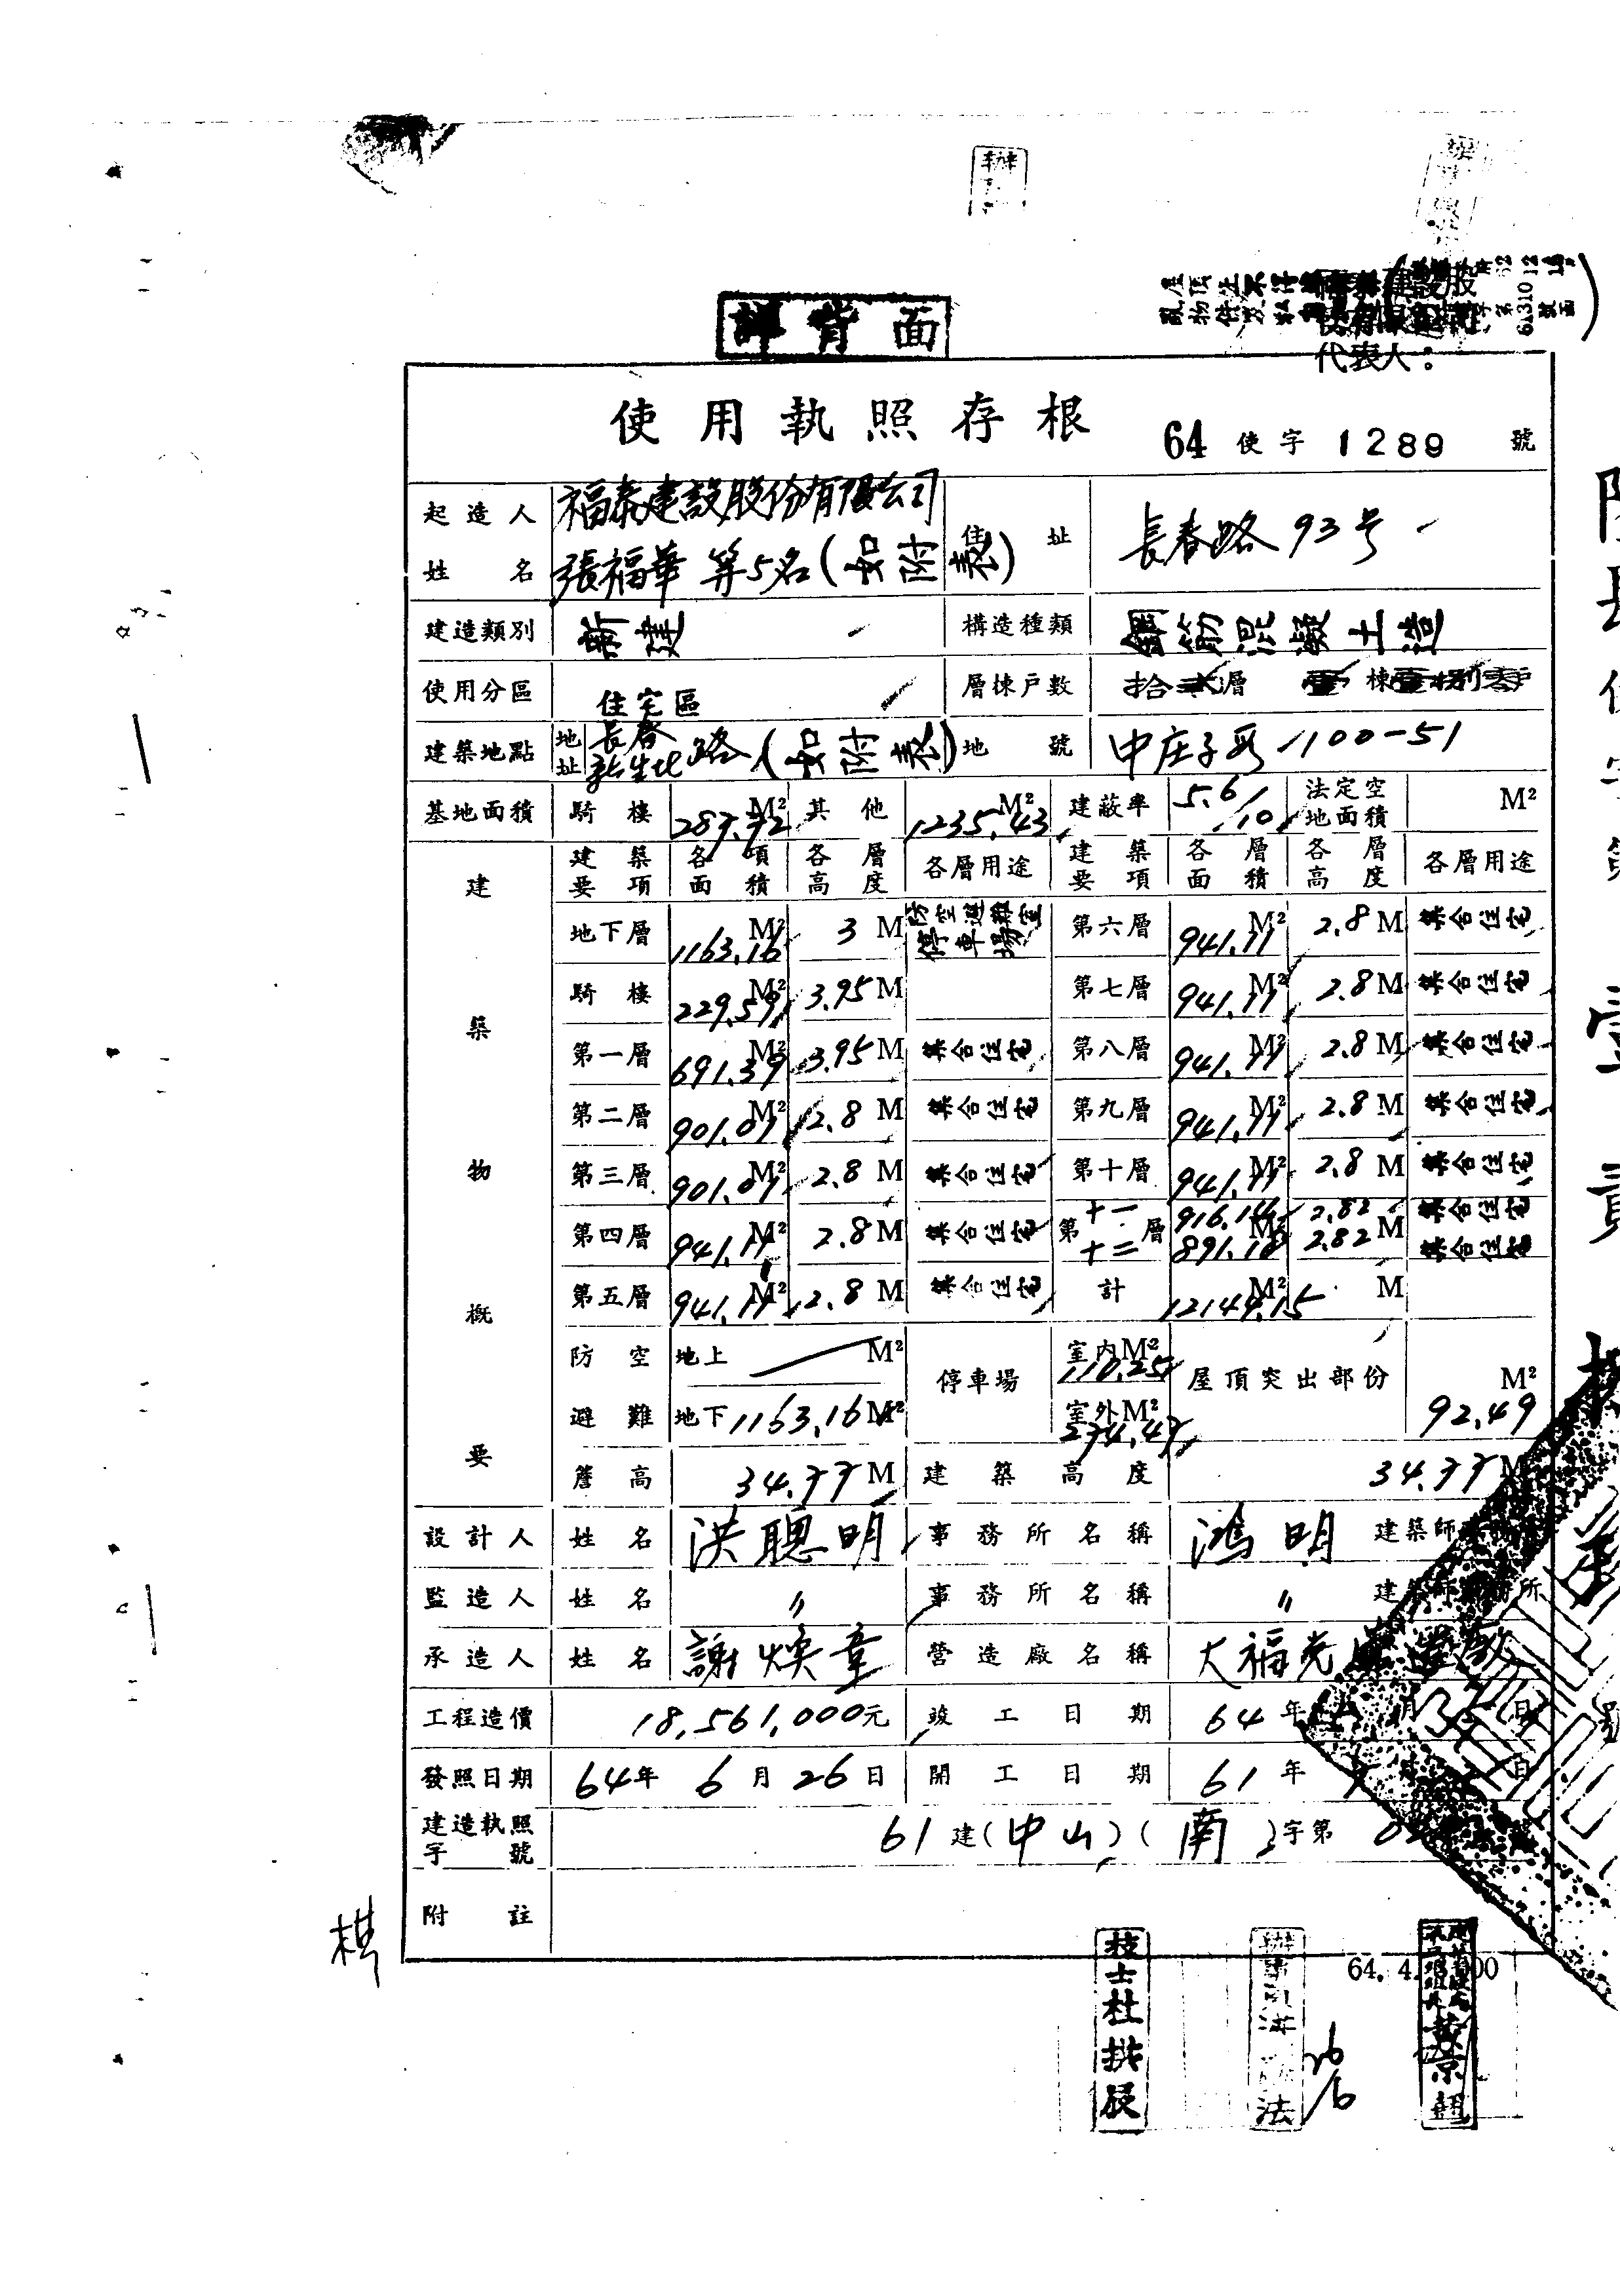 詳背面
代表人：
使用執照存根
64 使字 1289 號
起造人姓名 福泰建設股份有限公司 張福華等5名（如附表） 住址 長春路93号
建造類別 新建 構造種類 鋼筋混凝土造
使用分區 住宅區 層棟戶數 拾貳層 壹棟
建築地點 地址 長春 新生北 路（如附表） 地號 中庄子段100-51
基地面積 騎樓 287.72 M² 其他 1235.43 M² 建蔽率 5.6/10 法定空地面積 M²
建築物概要
建築要項 各項面積 各層高度 各層用途 建築要項 各層面積 各層高度 各層用途
地下層 1163.16 M² 3 M 防空避難室 停車場 第六層 941.11 M² 2.8 M 集合住宅
騎樓 229.59 M² 3.95 M 第七層 941.11 M² 2.8 M 集合住宅
第一層 691.39 M² 3.95 M 集合住宅 第八層 941.11 M² 2.8 M 集合住宅
第二層 901.01 M² 2.8 M 集合住宅 第九層 941.11 M² 2.8 M 集合住宅
第三層 901.01 M² 2.8 M 集合住宅 第十層 941.11 M² 2.8 M 集合住宅
第四層 941.11 M² 2.8 M 集合住宅 第十一 十二層 916.14 891.18 M² 2.82 2.82 M 集合住宅 集合住宅
第五層 941.11 M² 2.8 M 集合住宅 計 12144.15 M² M
防空避難 地上 M² 地下 1163.16 M² 停車場 室內 M² 110.25 室外 M² 274.47 屋頂突出部份 92.49 M²
簷高 34.77 M 建築高度 34.77 M
設計人 姓名 洪聰明 事務所名稱 鴻明 建築師
監造人 姓名 〃 事務所名稱 〃 建築師事務所
承造人 姓名 謝煥章 營造廠名稱 大福光營造廠
工程造價 18,561,000元 竣工日期 64年 月 日
發照日期 64年 6月 26日 開工日期 61年 日
建造執照字號 61建（中山）（南）字第
附註
棋
技士杜拱辰
26/6